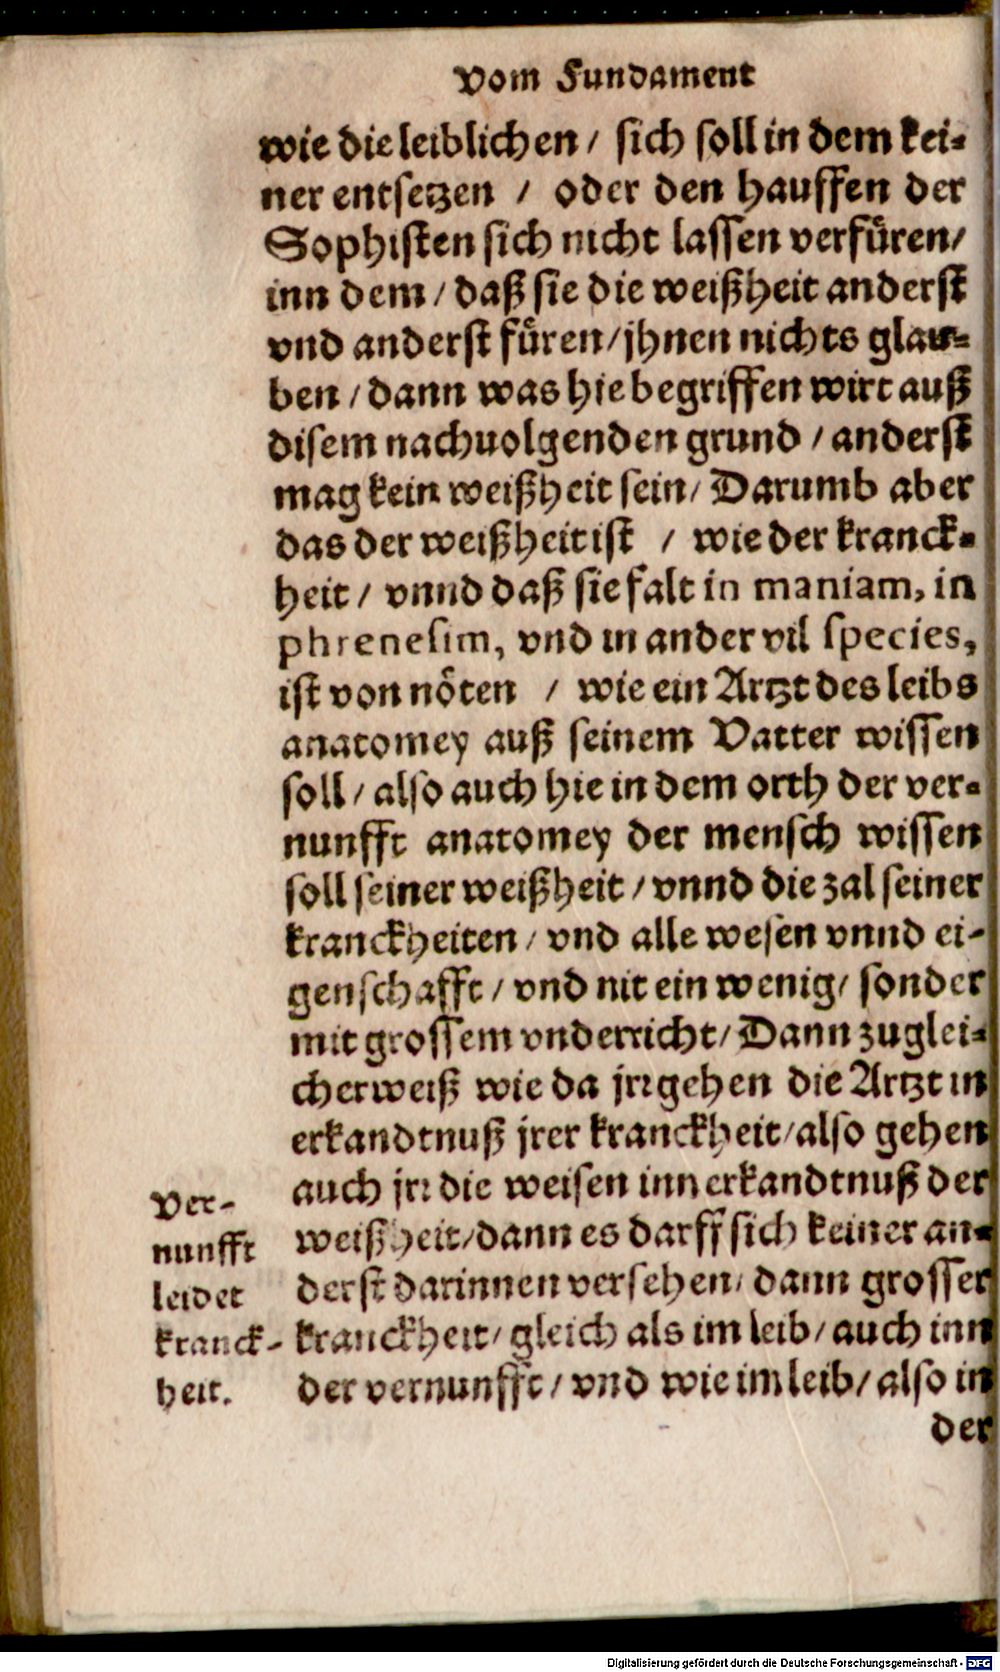 Vom Fundament
wie die leiblichen / sich soll in dem kei-
ner entsetzen / oder den hauffen der
Sophisten sich nicht lassen verfüren/
inn dem / daß sie die weißheit anderst
vnd anderst füren/jhnen nichts glau-
ben / dann was hie begriffen wirt auß
disem nachuolgenden grund / anderst
mag kein weißheit sein/ Darumb aber
das der weißheit ist / wie der kranck-
heit / vnnd daß sie falt in maniam, in
phrenesim, vnd in ander vil species,
ist von nöten / wie ein Artzt des leibs
anatomey auß seinem Vatter wissen
soll / also auch hie in dem orth der ver-
nunfft anatomey der mensch wissen
soll seiner weißheit / vnnd die zal seiner
kranckheiten / vnd alle wesen vnnd ei-
genschafft / vnd nit ein wenig/ sonder
mit grossem vnderricht/ Dann zuglei-
cherweiß wie da jrr gehen die Artzt in
erkandtnuß jrer kranckheit/also gehen
auch jrr die weisen inn erkandtnuß der
weißheit/dann es darff sich keiner an-
derst darinnen versehen/ dann grosser
kranckheit/ gleich als im leib/ auch inn
der vernunfft / vnd wie im leib/ also in
der
Ver-
nunfft
leidet
kranck-
heit.
Digitalisierung gefördert durch die Deutsche Forschungsgemeinschaft - DFG